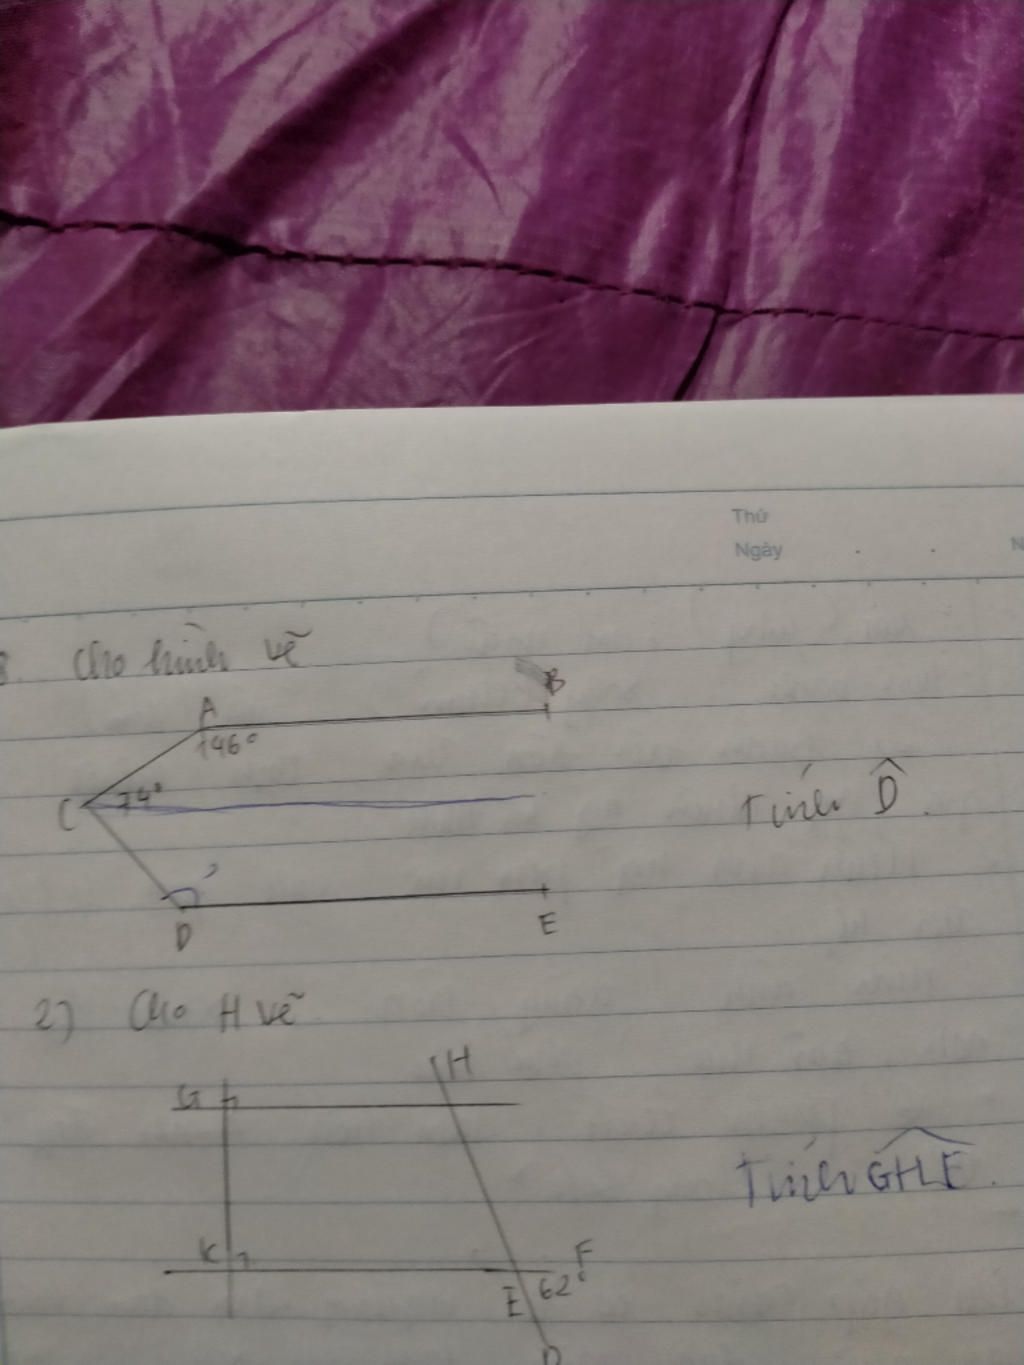 Thứ
Ngày
N
3. Cho hình vẽ
B
A
146°
C 74°
Tính D̂.
D
E
2) Cho H vẽ
H
G
Tính GHE.
K
F
E 62°
D